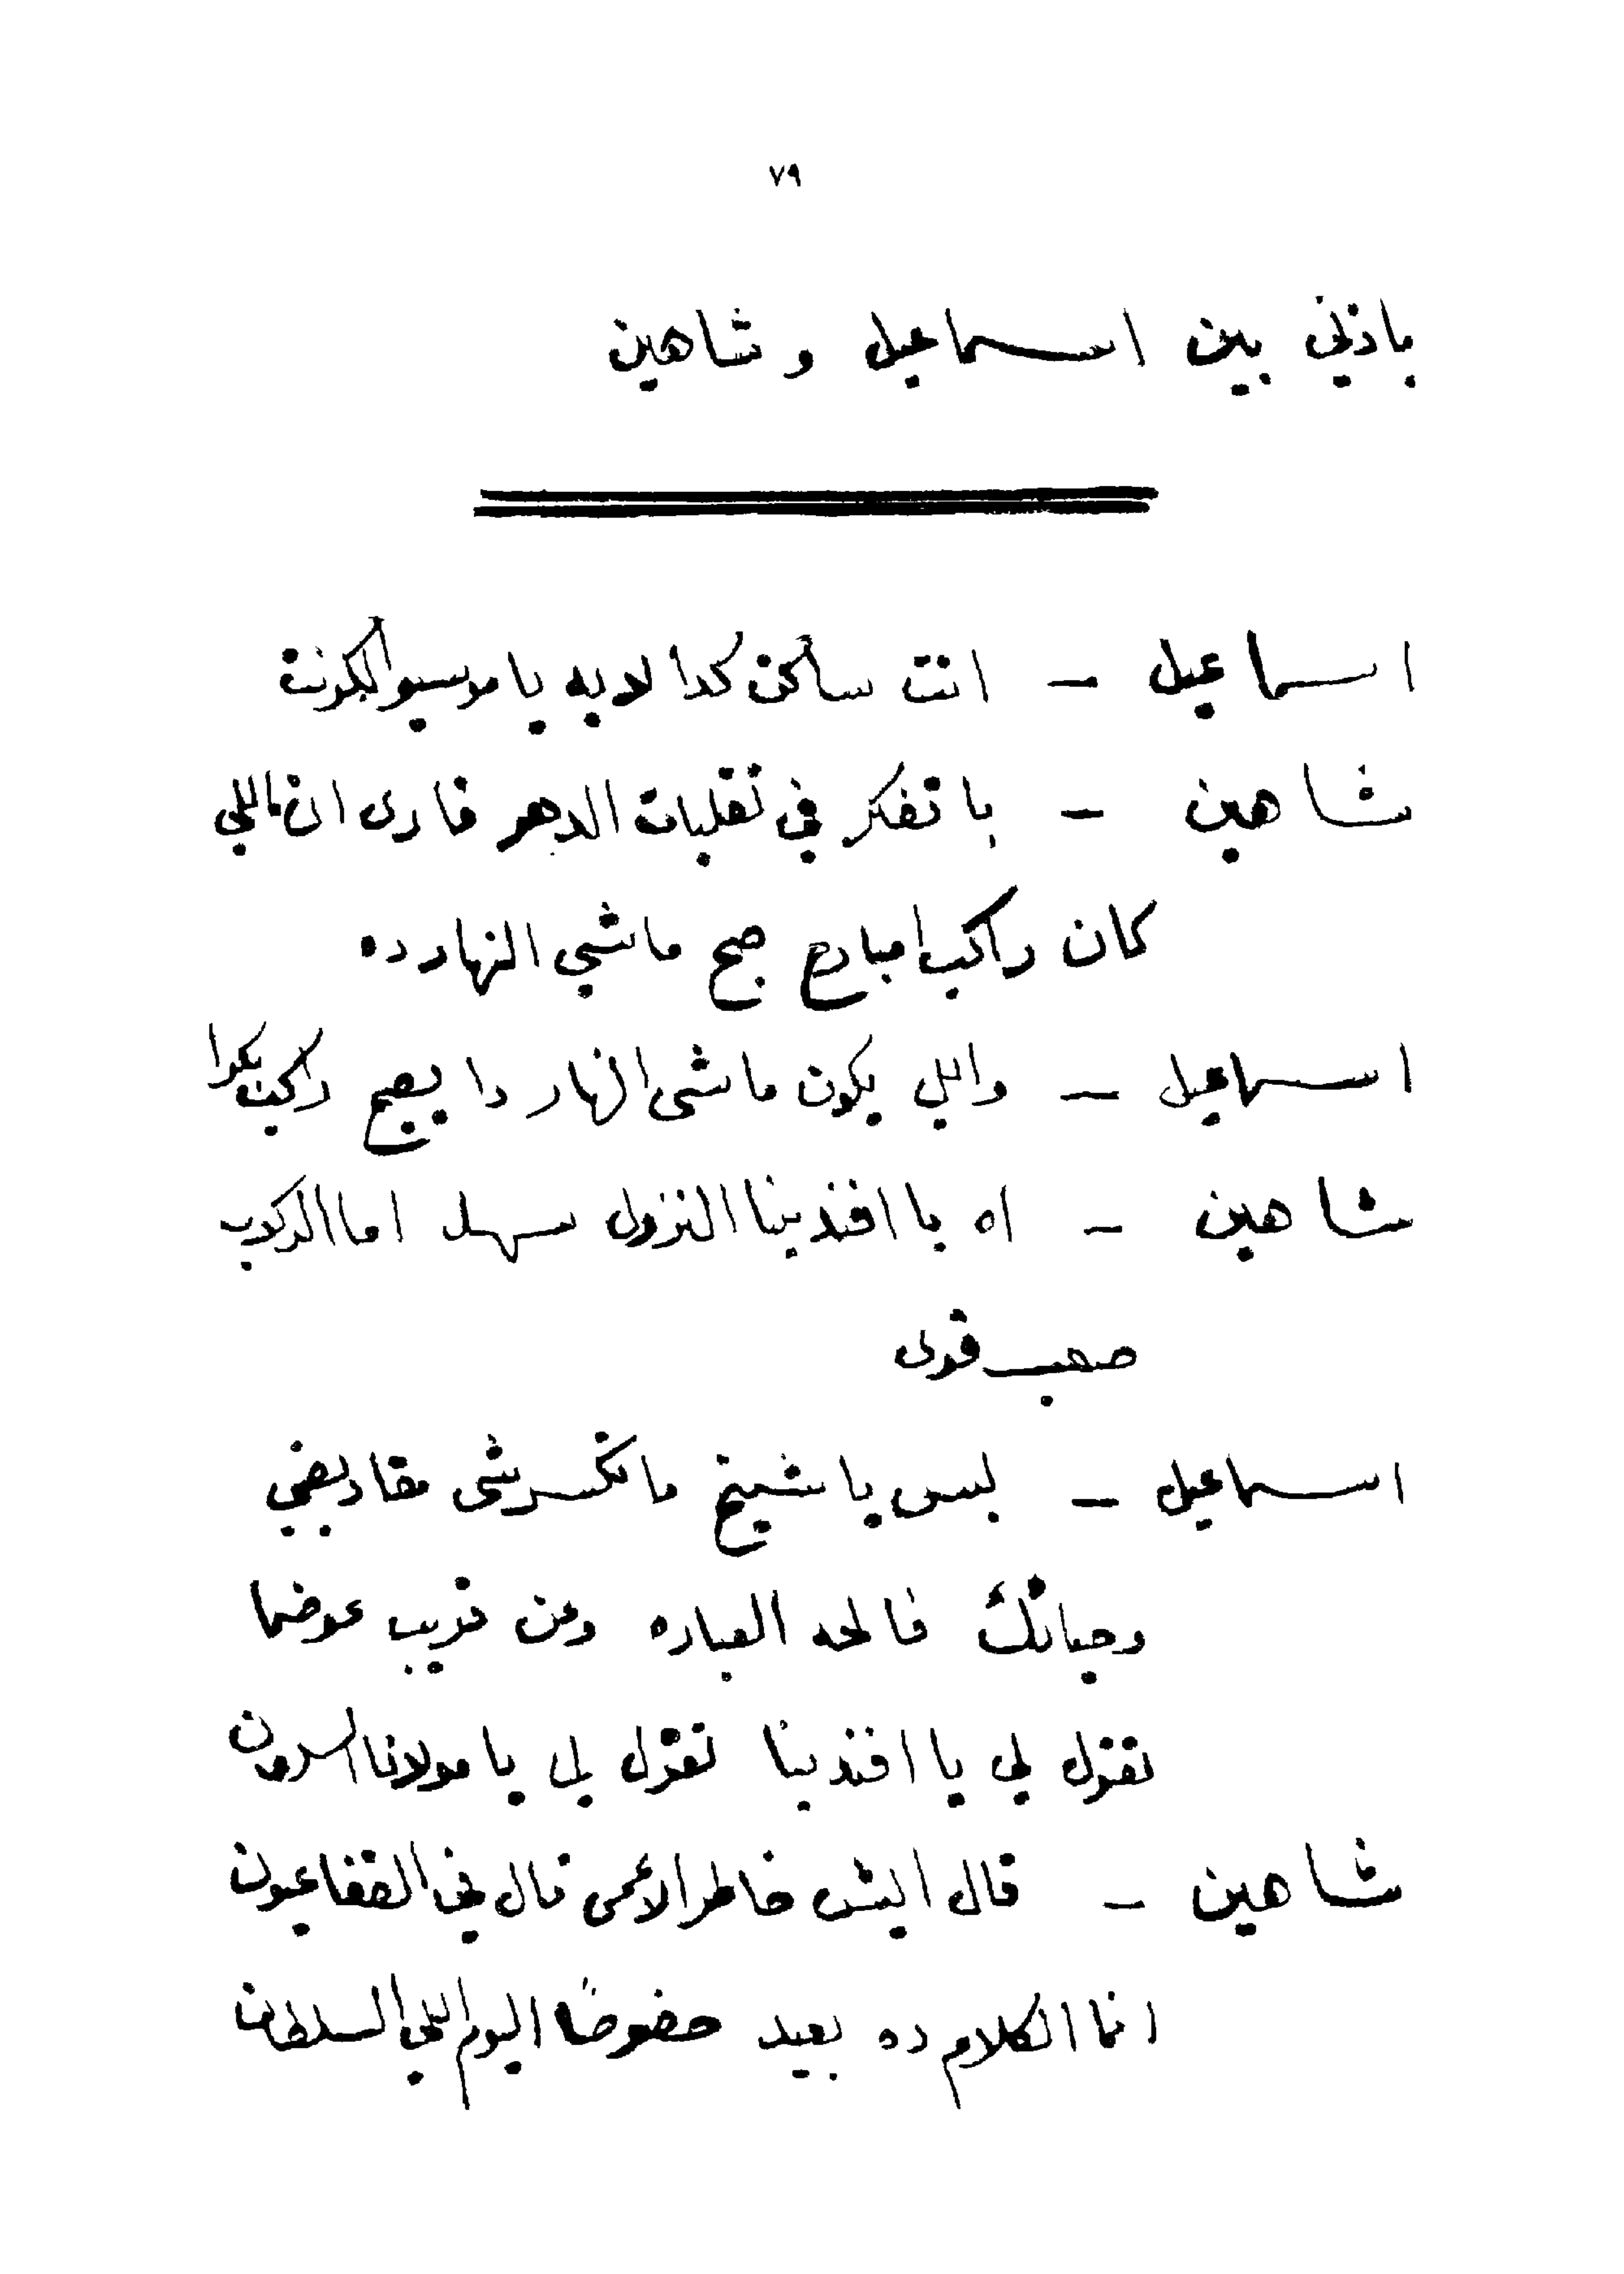 ٧٩
باذني بين اسماعيل و شاهين
اسماعيل — انت ساكن كدا لا يه يا موسيو الكونت
شاهين — باتفكر في تقلبات الدهر فارى ان اللي
كان راكب امبارح صبح ماشي النهار ده
اسماعيل — واللي يكون ماشى النهار دا يصبح راكب بكرا
شاهين — اه يا افندينا النزول سهل اما الركوب
صعب قوى
اسماعيل — بس يا شيخ ما تكسرشى مقاديفي
وحياتك فالحه العباره وعن قريب عوضما
تقول لي يا افندينا تقول لي يا مولانا السلطان
شاهين — قال ايش خاطر الاعمى قال قفة عيون
انما الكلام ده بعيد خصوصًا اليوم اللي السلطان